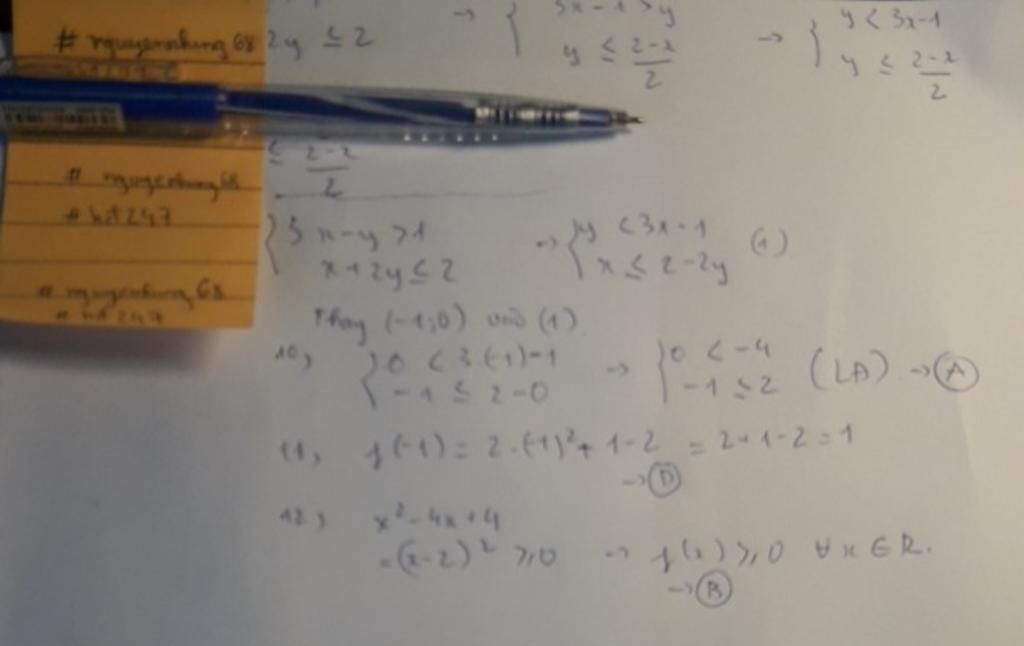 # nguyenhung68
2y ≤ 2 → { 3x-1 > y → { y < 3x-1
y ≤ 2-x/2 y ≤ 2-x/2
≤ 2-x/2
# nguyenhung68
# ht247
{ 3x-y > 1 → { y < 3x-1 (1)
x+2y ≤ 2 x ≤ 2-2y
# nguyenhung68
# ht247
Thay (-1;0) vào (1)
10, { 0 < 3(-1)-1 → { 0 < -4 (LĐ) → A
-1 ≤ 2-0 -1 ≤ 2
11, f(-1) = 2.(-1)²+1-2 = 2+1-2=1
→ D
12, x²-4x+4
=(x-2)² ≥ 0 → f(x) ≥ 0 ∀x∈R.
→ B